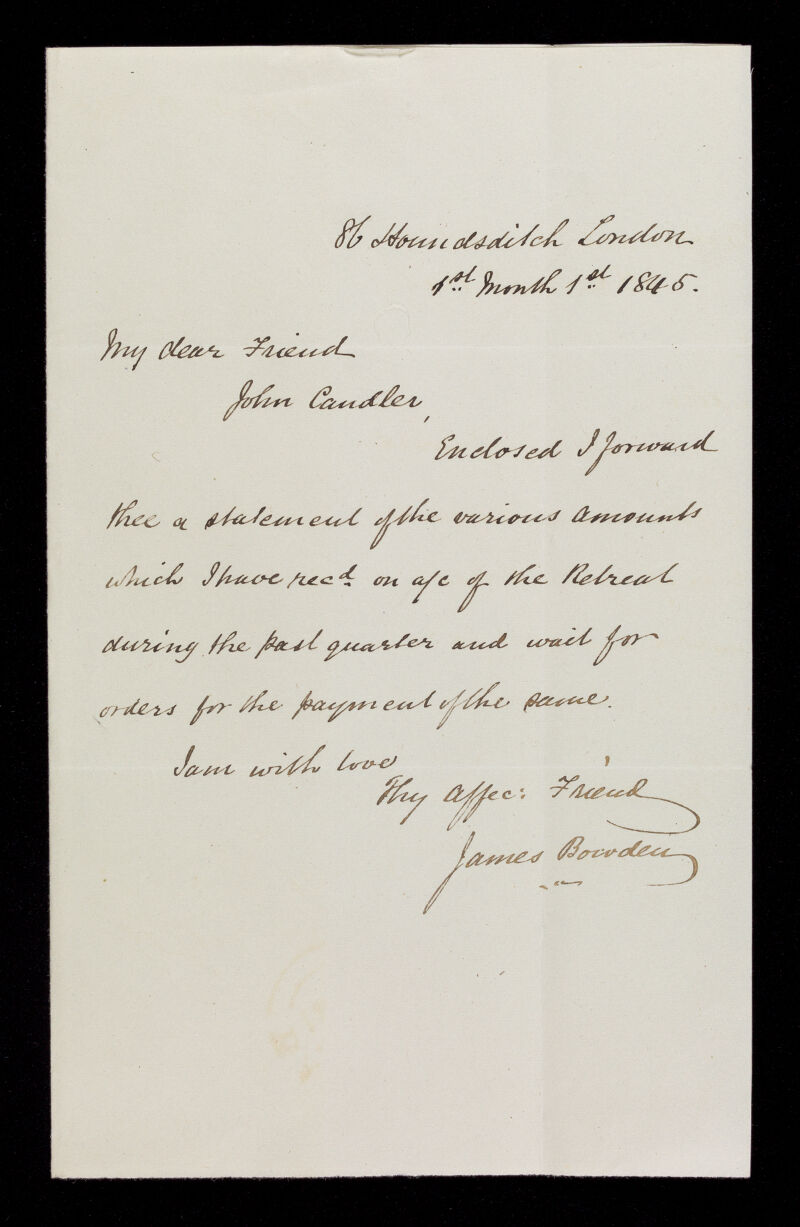 86 Houndsditch London
1st Month 1st 1845.
My dear Friend
John Candler,
Enclosed I forward
thee a statement of the various amounts
which I have recd on a/c of the Retreat
during the past quarter and wait for
orders for the payment of the same.
I am with love
Thy Affec: Friend
James Bowden